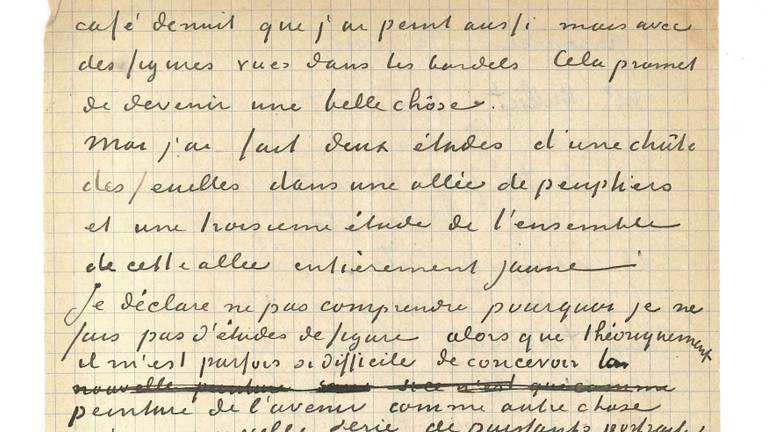 café de nuit que j'ai peint aussi mais avec
des figures vues dans les bordels Cela promet
de devenir une belle chôse.
Moi j'ai fait deux études d'une chûte
des feuilles dans une allée de peupliers
et une troisieme étude de l'ensemble
de cette allée entièrement jaune —
Je déclare ne pas comprendre pourquoi je ne
fais pas d'études de figure alors que théoriquement
il m'est parfois si difficile de concevoir la
nouvelle peinture si ce n'est que comme
peinture de l'avenir comme autre chose
série de puissants